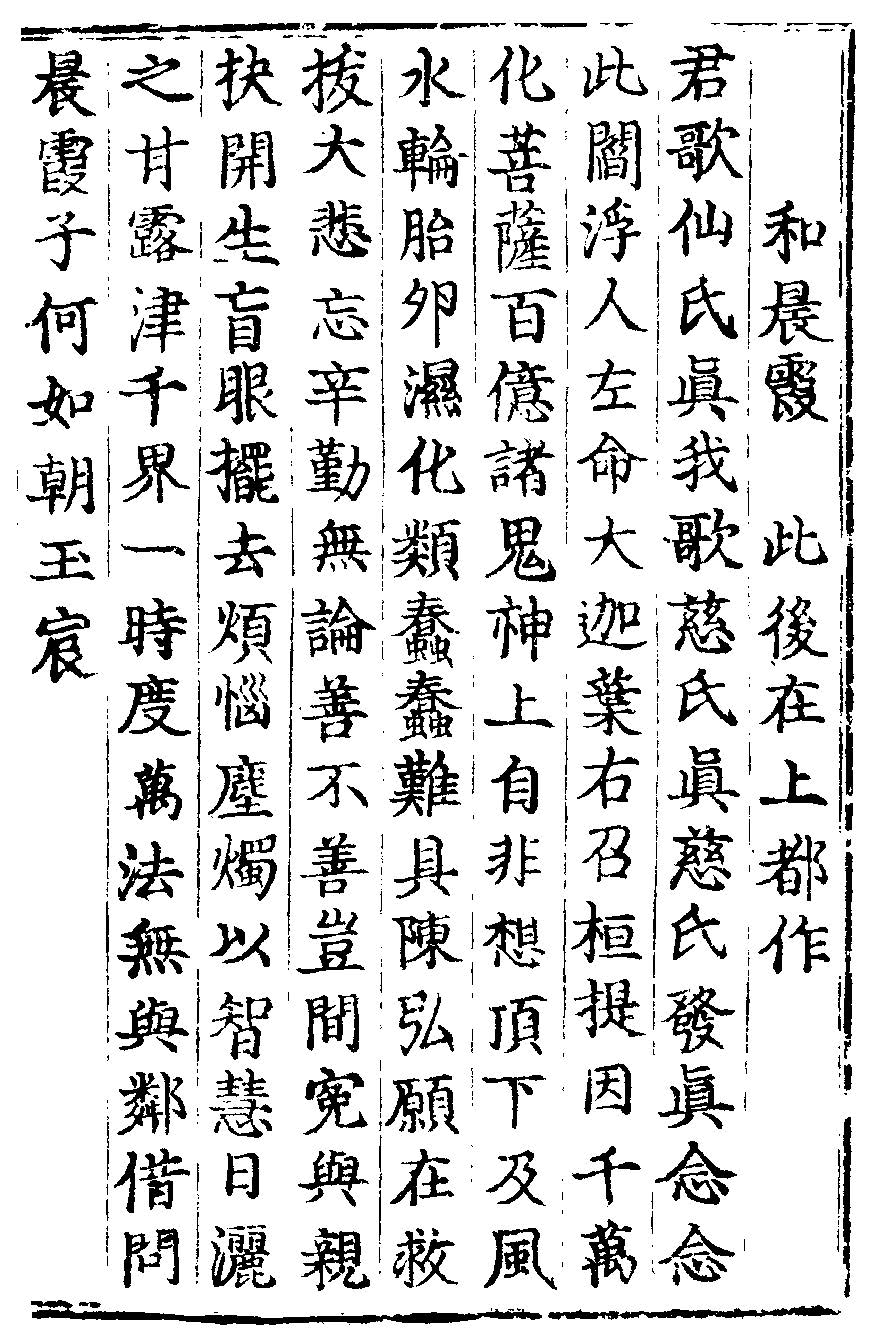 和晨霞　此後在上都作
君歌仙氏眞我歌慈氏眞慈氏發眞念念
此閻浮人左命大迦葉右召桓提因千萬
化菩薩百億諸鬼神上自非想頂下及風
水輪胎卵濕化類蠢蠢難具陳弘願在救
拔大悲忘辛勤無論善不善豈間寃與親
抉開生盲眼擺去煩惱塵燭以智慧日灑
之甘露津千界一時度萬法無與鄰借問
晨霞子何如朝玉宸